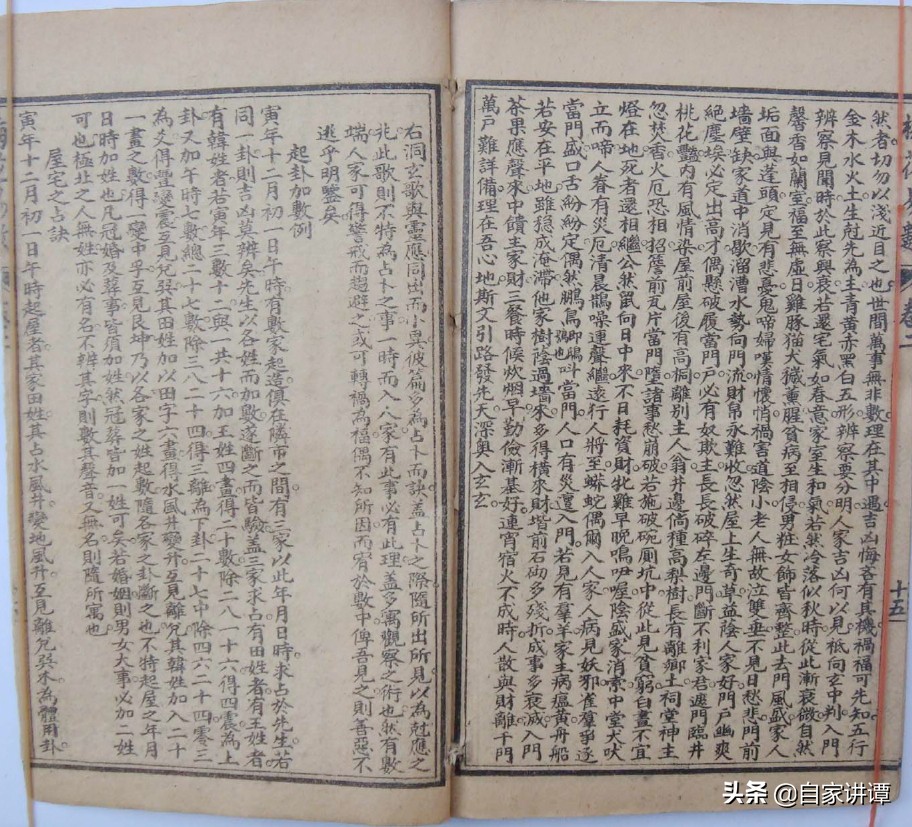 然者切勿以淺近目之也世間萬事無非數理在其中遇吉凶悔吝有其機禍福可先知五行
金木水火土生尅先為主青黃赤黑白五形辨察要分明人家吉凶何以見秪向玄中判入門
辨察見聞時於此察興衰若還宅氣如春意家室生和氣若然冷落似秋時從此漸衰微自然
馨香如蘭室福至無虛日雞豚猫犬穢薰腥貧病至相侵男粧女飾皆齊整此去門風盛家人
垢面與蓬頭定見有悲憂鬼啼婦嘆情懷悄禍害道陰小老人無故立雙垂不見日愁悲門前
墻壁缺家道中消歇溜漕水勢向門流財帛永難收忽然屋上生奇草益陰人家好門戶幽爽
絕塵埃必定出高才偶懸破履當門戶必有奴欺主長長破碎左邊門斷不利家君遮門臨井
桃花艷內有風情染屋前屋後有高桐離別主人翁井邊倘種高梨樹長有離鄉土祠堂神主
忽焚香火厄恐相招簷前瓦片當門墮諸事愁崩破若施破碗厠坑中從此見貧窮白晝不宜
燈在地死者還相繼公然鼠向日中來不日耗資財牝雞早晚鳴喔陰盛家消索中堂犬吠
立而啼人眷有災厄清晨鵲噪連聲繼遠行人將至蟒蛇偶爾入人家人病見妖邪雀羣爭逐
當門盛口舌紛紛定偶然鵬鳥叫當門人口有災遭入門若見有羣羊家主病瘟黃舟船
若安在平地雖穩成淹滯他家樹蔭過墻來多得橫來財堦前石砌多殘折成事多衰滅入門
茶果應聲來中饋主家財三餐時候炊烟早勤儉漸基好連宵宿火不成時人散與財離千門
萬戶難詳備理在吾心地斯文引路發先天深奧入玄玄
十五
右洞玄歌與靈應同出而小異彼篇多為占卜而訣蓋占卜之際隨所出所見以為尅應之
兆此歌則不特為占卜之事一時而入人家有此事必有此理蓋多寓觀察之術也然有數
端人家可得警戒而趨避之或可轉禍為福偶不知所因而宥於數中俾吾見之則善惡不
逃乎明鑒矣
起卦加數例
寅年十二月初一日午時有數家起造俱在隣市之間有三家以此年月日時求占於先生若
同一卦則吉凶莫辨矣先生以各姓而加數遂斷之而皆驗蓋三家求占有田姓者有王姓者
有韓姓者若寅年三數十二與一共十六加王姓四畫得二十數除二八一十六得四震為上
卦又加午時七數總二十七數除三八二十四得三離為下卦二十七中除四六二十四零三
為爻得豐變震互見兌巽其田姓加以田字六畫得水風井變升互見離兌其韓姓加入二十
一畫之數得一變中孚互見艮坤乃以各家之姓起數隨各家之卦斷之也不特起屋之年月
日時加姓也凡冠婚及葬事皆須加姓然冠葬皆加一姓可矣若婚姻則男女大事必加二姓
可也極北之人無姓亦必有名不辨其字則數其聲音又無名則隨所寓也
屋宅之占訣
寅年十二月初一日午時起屋者其家田姓其占水風井變地風升互見離兌巽木為體用卦
头条 @自家讲谭